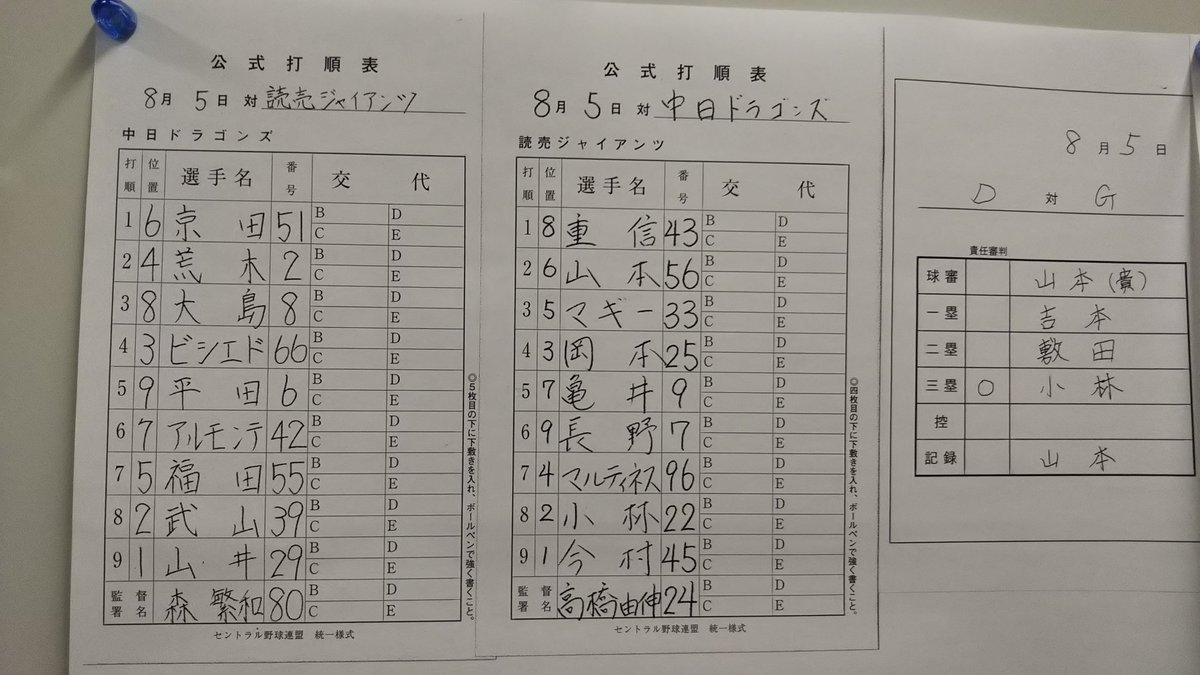 公式打順表
8月 5日 対 読売ジャイアンツ
中日ドラゴンズ
打順 位置 選手名 番号 交代
1 6 京田 51 B D C E
2 4 荒木 2 B D C E
3 8 大島 8 B D C E
4 3 ビシエド 66 B D C E
5 9 平田 6 B D C E
6 7 アルモンテ 42 B D C E
7 5 福田 55 B D C E
8 2 武山 39 B D C E
9 1 山井 29 B D C E
監督署名 森繁和 80 B D C E
セントラル野球連盟 統一様式
◎5枚目の下に下敷きを入れ、ボールペンで強く書くこと。
公式打順表
8月 5日 対 中日ドラゴンズ
読売ジャイアンツ
打順 位置 選手名 番号 交代
1 8 重信 43 B D C E
2 6 山本 56 B D C E
3 5 マギー 33 B D C E
4 3 岡本 25 B D C E
5 7 亀井 9 B D C E
6 9 長野 7 B D C E
7 4 マルティネス 96 B D C E
8 2 小林 22 B D C E
9 1 今村 45 B D C E
監督署名 高橋由伸 24 B D C E
セントラル野球連盟 統一様式
◎四枚目の下に下敷きを入れ、ボールペンで強く書くこと。
8月 5日
D 対 G
責任審判
球審 山本(貴)
一塁 吉本
二塁 敷田
三塁 ○ 小林
控
記録 山本